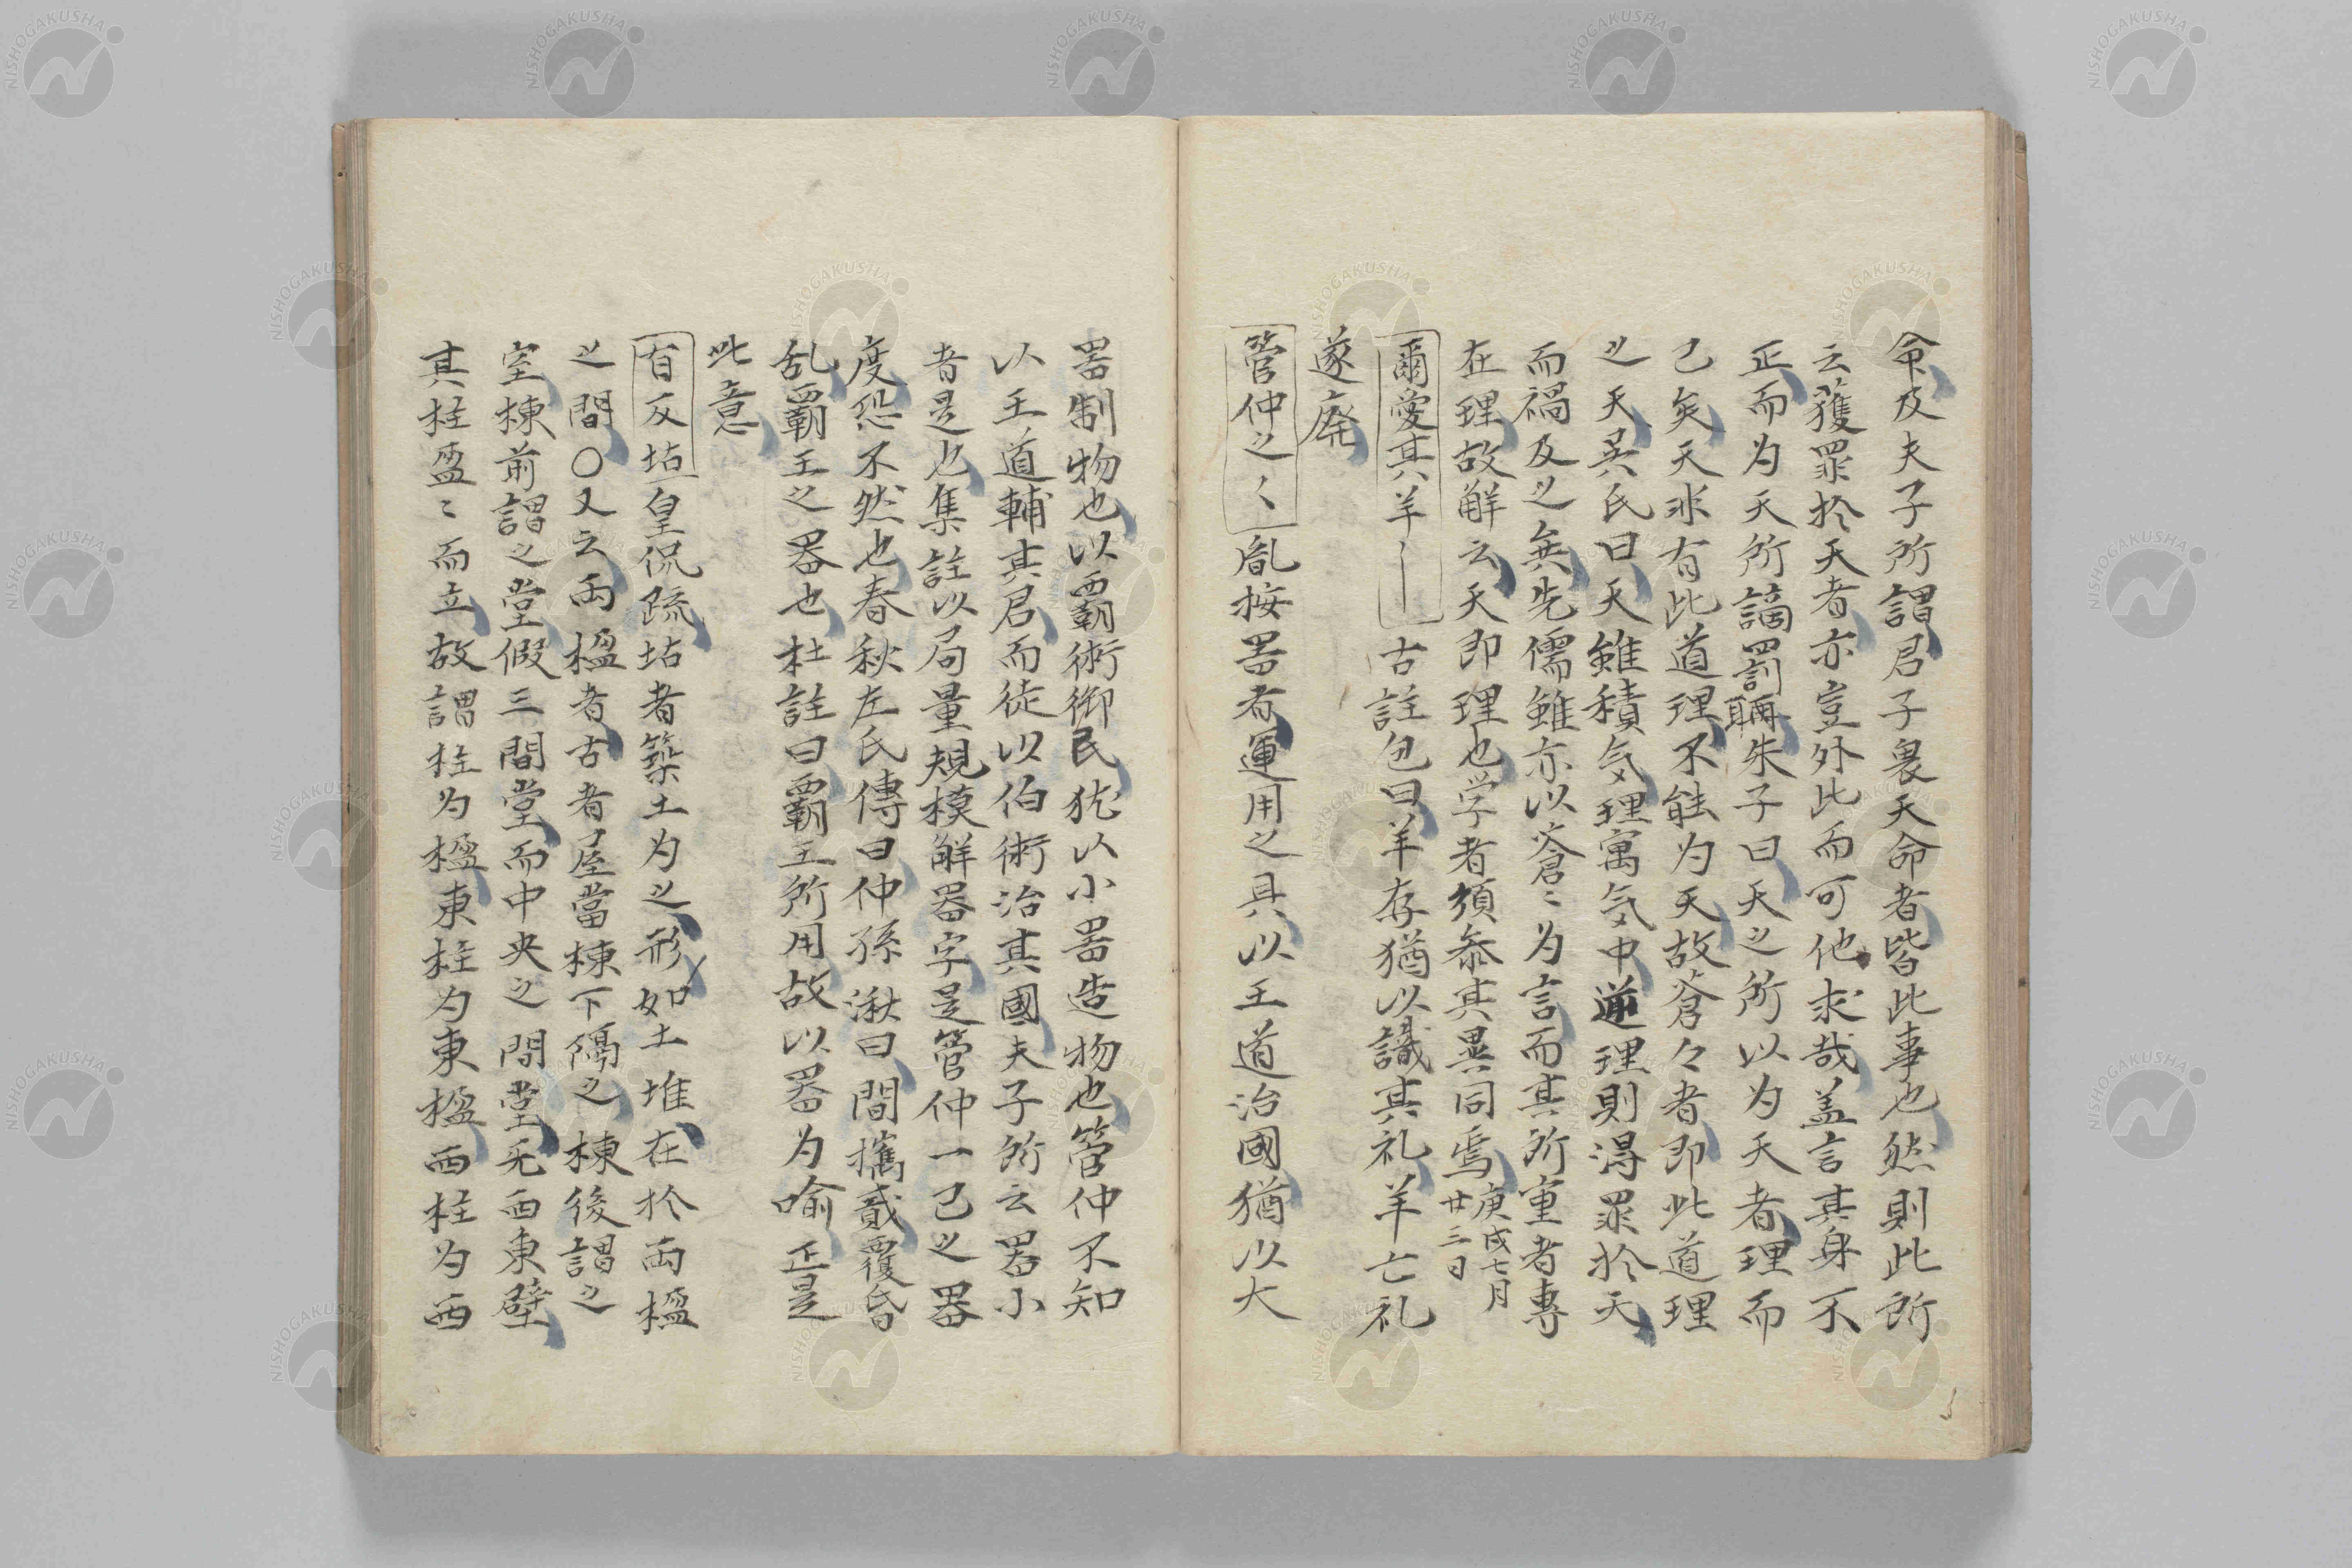 命及夫子所謂君子畏天命者皆此事也然則此所
云獲罪於天者亦豈外此而可他求哉盖言其身不
正而为天所謫罰耳朱子曰天之所以为天者理而
己矣天非有此道理不能为天故蒼々者即此道理
之天吳氏曰天雖積気理寓気中逆理則得罪於天
而禍及之無先儒雖亦以蒼〻为言而其所重者專
在理故解云天即理也学者須参其異同焉庚戌七月廿三日
爾愛其羊〡〡古註包曰羊存猶以識其礼羊亡礼
遂廃
管仲之〻胤按噐者運用之具以王道治國猶以大
噐制物也以覇術御民犹以小噐造物也管仲不知
以王道輔其君而徒以伯術治其國夫子所云噐小
者是也集註以局量規模解器字是管仲一己之器
度恐不然也春秋左氏傳曰仲孫湫曰間攜貳覆昏
乱覇王之器也杜註曰覇王所用故以器为喻正是
此意
有反坫皇侃䟽坫者築土为之形如土堆在於両楹
之間〇又云両楹者古者屋當棟下隔之棟後謂之
室棟前謂之堂假三間堂而中央之間堂无西東壁
其柱盈〻而立故謂柱为楹東柱为東楹西柱为西
NISHOGAKUSHA